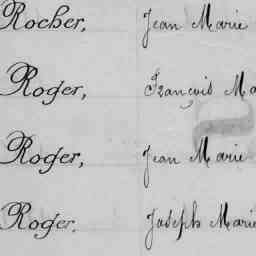 Rocher, Jean Marie
Roger, François Ma
Roger, Jean Marie
Roger, Joseph Marie